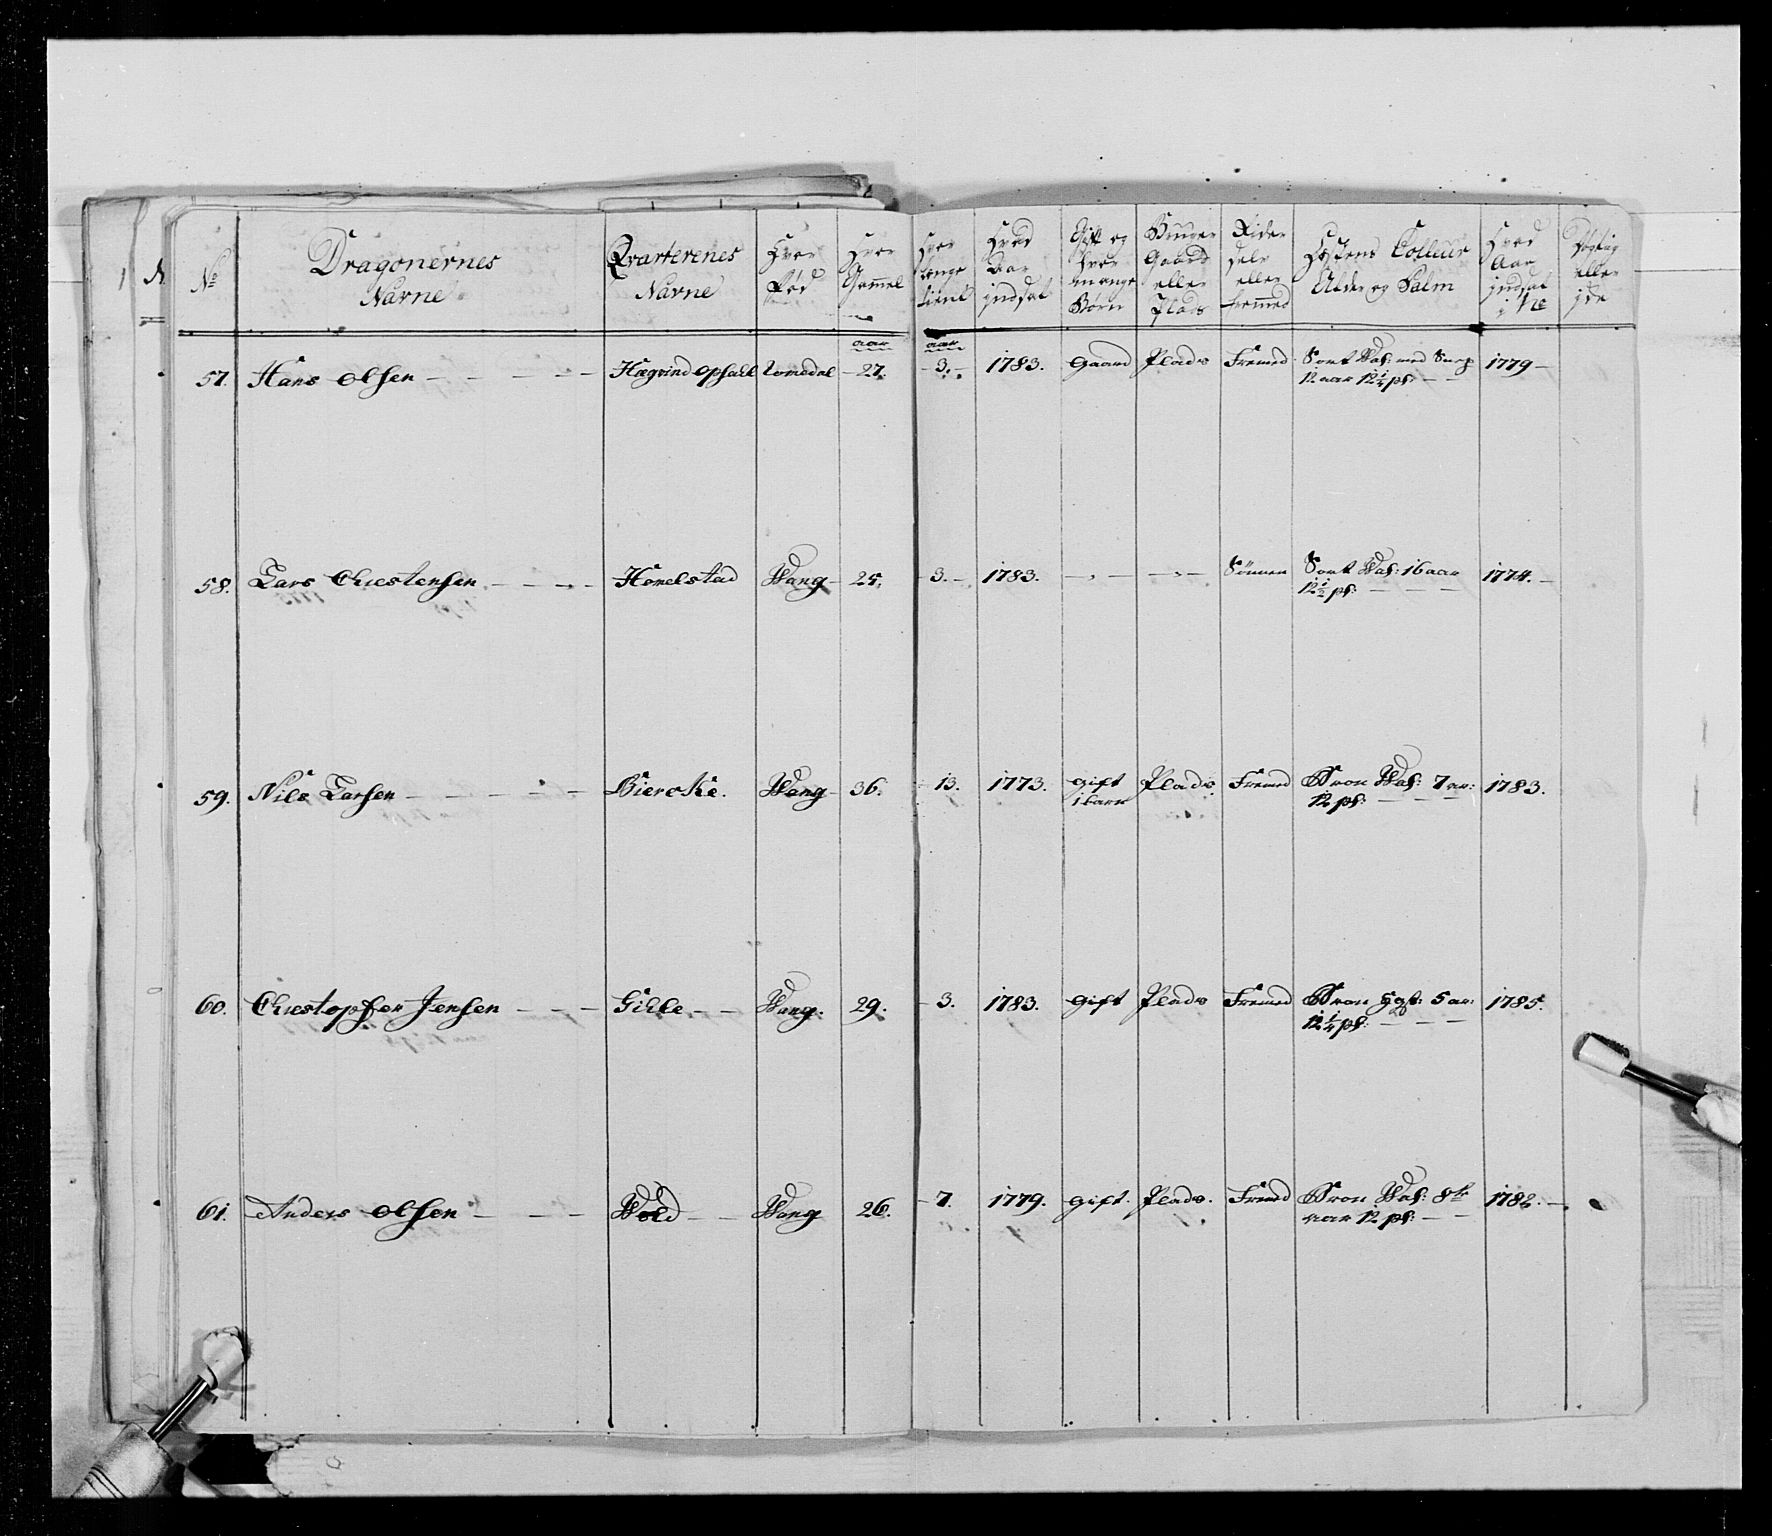 No | Dragonernes Navne | Qvarterenes Navne | Hvor Fød | Hvor Gammel | Hvor længe tient | Hvad Aar indsat | Gift og hvor mange Børn | Bruger Gaard eller Plads | Rider selv eller fremed | Hæstens Colleur Alder og Palm | Hvad Aar indsat i No | Dygtig eller ide
aar | aar
57. | Hans Olsen | Hægvind Opsall | Romedal | 27. | 3. | 1783. | Gaard | Plads | Fremed | Sort Val: med 12 aar 12 1/4 pl: | 1779
58. | Lars Chrestensen | Homelstad | Wang | 25. | 3. | 1783. | | | Sønnen | Sort Val: 16 aar 12 1/2 pl: | 1774.
59. | Nils Larsen | Bierche. | Wang | 36. | 13. | 1773. | gift 1 barn | Plads | Fremed | Bron Val: 7 ar: 12 pl: | 1783.
60. | Chrestopher Jensen | Gille | Wang. | 29. | 3. | 1783. | gift | Plads | Fremed | Bron Hgst: 5 ar: 12 1/4 pl: | 1785.
61. | Anders Olsen | Wold | Wang | 26. | 7. | 1779. | gift. | Plads. | Fremed | Bron Val: 8te aar 12 pl: | 1782.